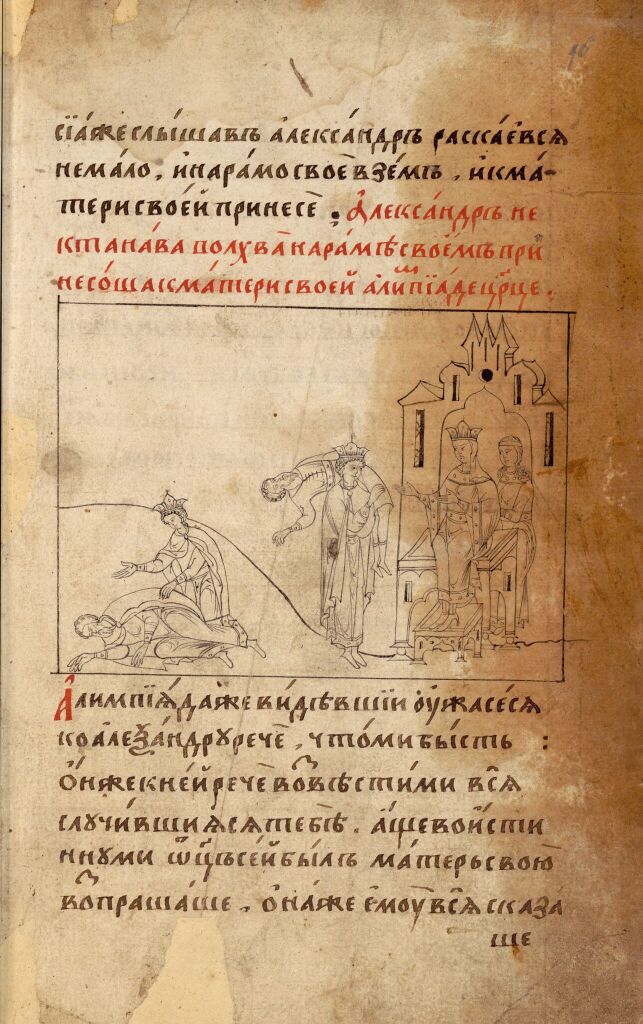 сїꙗжеслышавъ а҆леѯа́ндръ раскаꙗ́всѧ
нема́ло, и҆нара́мосвоѐвзе́мъ, и҆кма́-
терисвое́йпринесѐ. А҆леѯа́ндръ не
ктана́ва волхва̀ нара́мѣсвое́мъпри
несо́шакма́терисвоей а҆лимпїа́децр҃це.
А҆лимпїѧ́даже ви́дѣвшїи о҆ужасесѧ
коалеѯа́ндруречѐ, чтомибысть :
о҆нжекнейречѐ воⷥвѣстими всѧ̀
случи́вшиѧсѧтебѣ. а҆щевои́сти
ннуми ѿц҃ъсе́йбылъ ма́терьсвою̀
вопраша́ше, о҆на́же е҆моу̀всѧ̀сказа́
ше